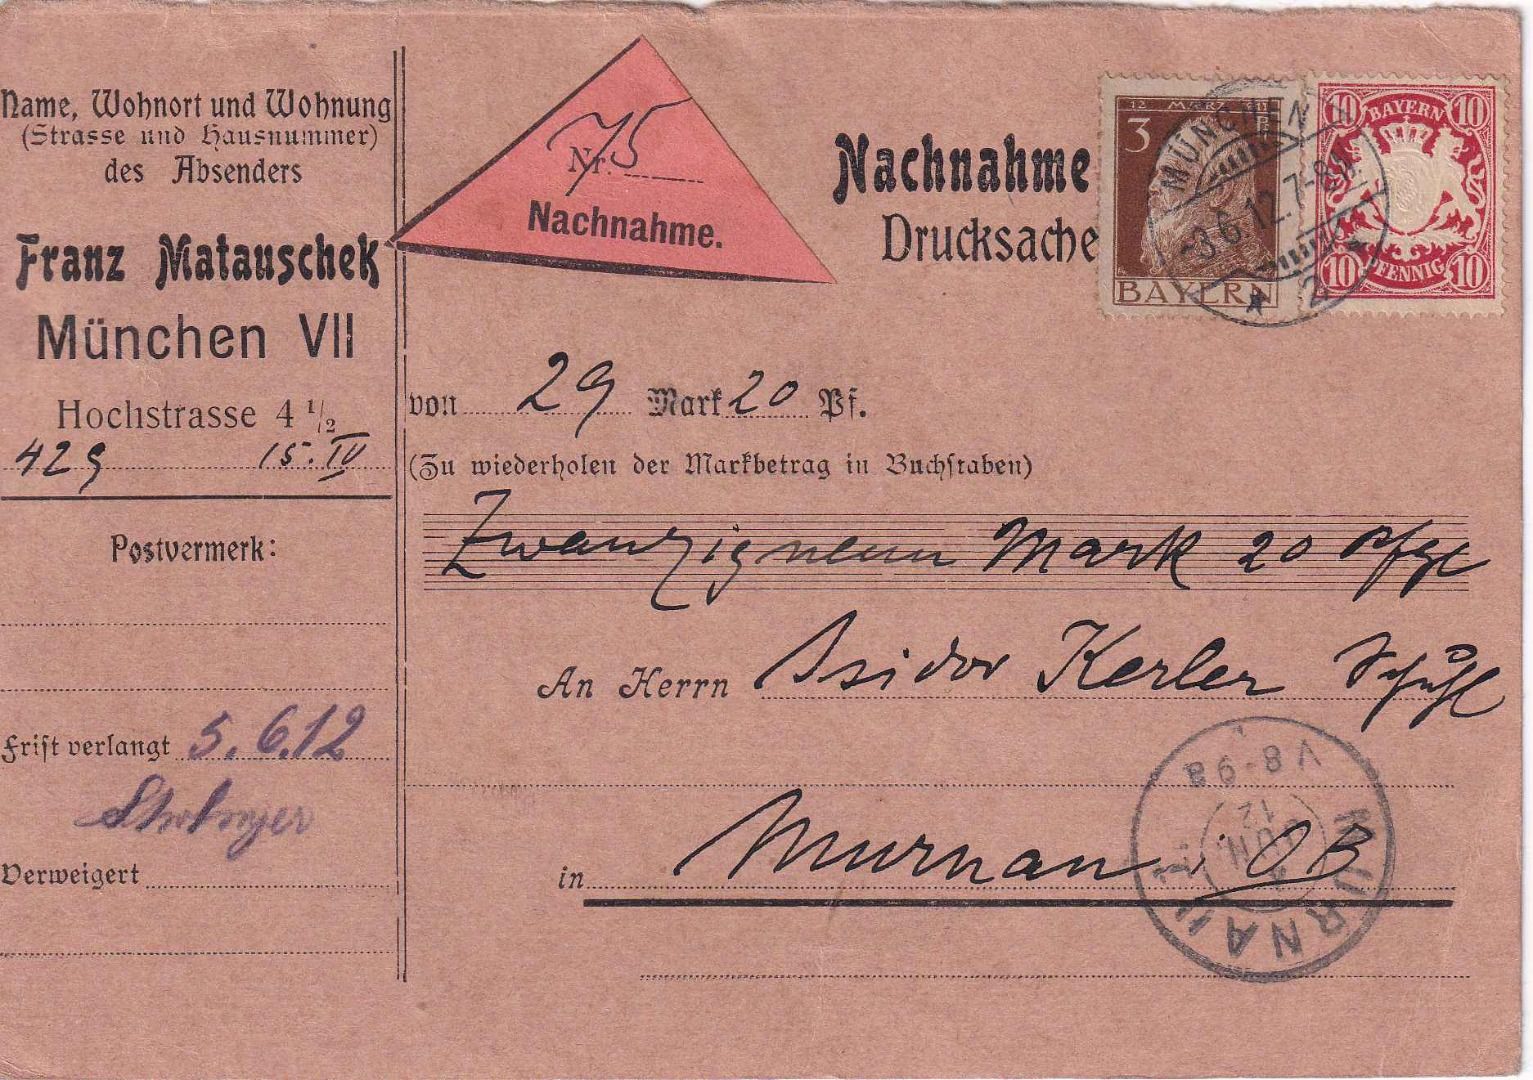 Name, Wohnort und Wohnung
(Strasse und Hausnummer)
des Absenders
Franz Matauschek
München VII
Hochstrasse 4 1/2
429 15. IV
Postvermerk:
Frist verlangt 5.6.12
Verweigert
Nr. 75
Nachnahme.
Nachnahme
Drucksache
12 MÄRZ 1911
3 Pf
BAYERN
BAYERN
10 10
10 PFENNIG 10
MÜNCHEN
-3.6.12.7-8
2
von 29 Mark 20 Pf.
(Zu wiederholen der Markbetrag in Buchstaben)
Zwanzigneun Mark 20 Pfge
An Herrn Isidor Kerler
in Murnau i OB
MURNAU
V 8-9
JUN.
12